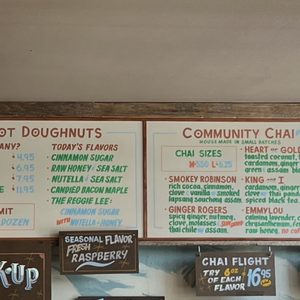 OT DOUGHNUTS
ANY?
4.95
6.95
7.95
11.95
MIT
DOZEN
TODAY'S FLAVORS
• CINNAMON SUGAR
• RAW HONEY & SEA SALT
• NUTELLA & SEA SALT
• CANDIED BACON MAPLE
• THE REGGIE LEE:
CINNAMON SUGAR
WITH NUTELLA & HONEY
COMMUNITY CHAI
HOUSE MADE IN SMALL BATCHES
CHAI SIZES
• SMOKEY ROBINSON
rich cocoa, cinnamon,
clove, vanilla in smoked
lapsang souchong assam
• GINGER ROGERS
spicy ginger, nutmeg,
clove, molasses
thai chile assam
• HEART OF GOLD
toasted coconut,
cardamom, ginger
• KING AND I
cardamom, ginger
• EMMYLOU
calming lavender,
chrysanthemum
SEASONAL FLAVOR
FRESH
RASPBERRY
K·UP
CHAI FLIGHT
TRY 6oz
OF EACH
FLAVOR
16.95